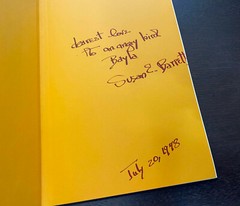 dearest
an angry bird
Bayla
Susan E. Barrett
July 20, 1998